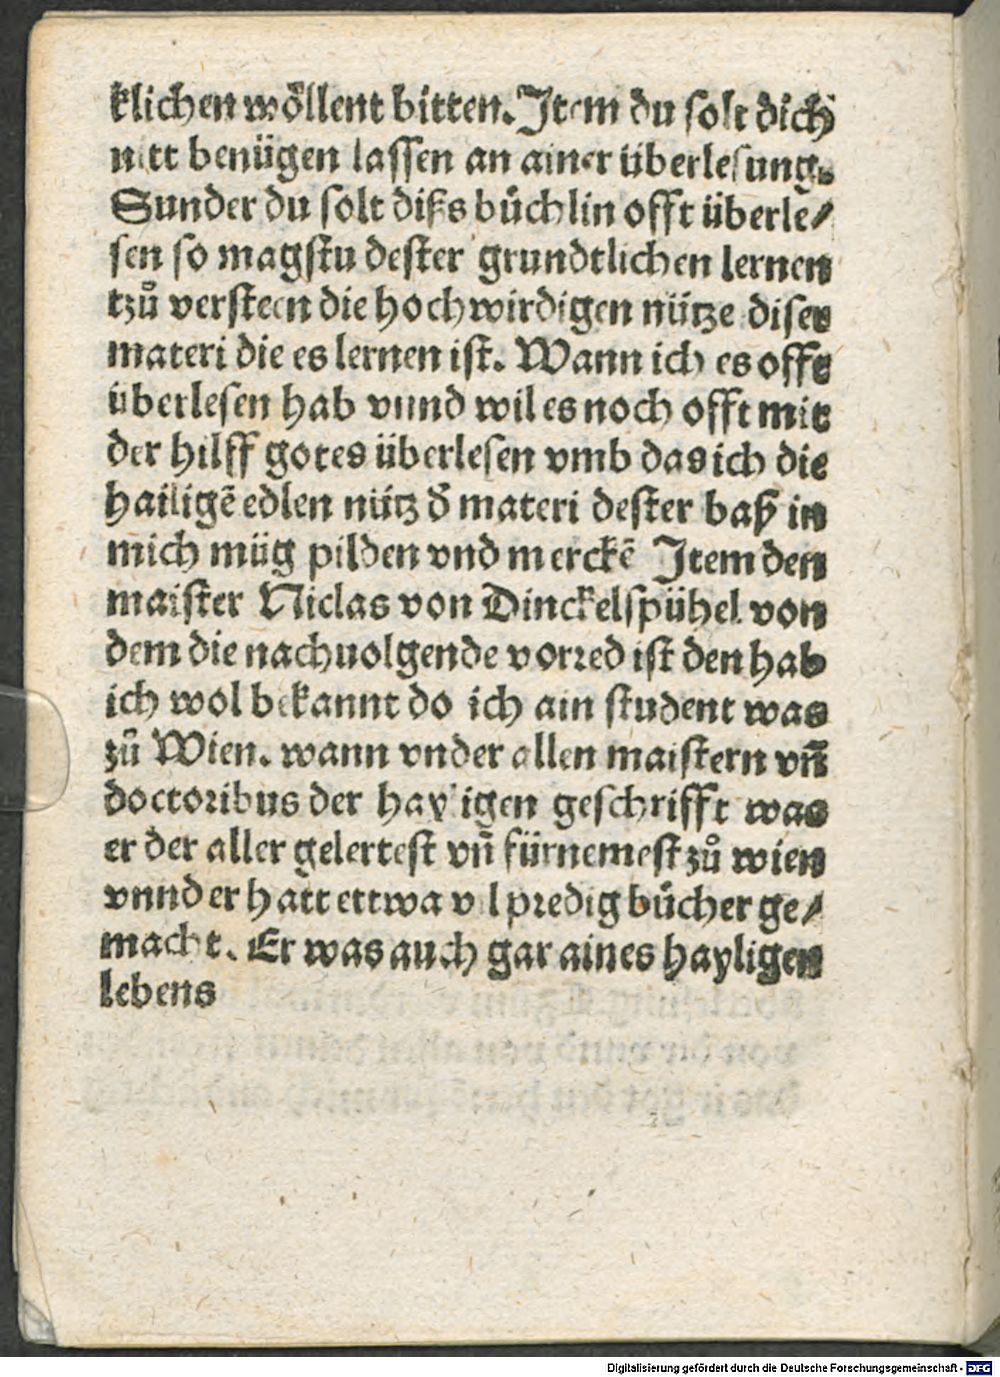 klichen wöllent bitten. Item du solt dich
nitt benügen lassen an ainer überlesung.
Sunder du solt diſs bůchlin offt überle/
sen so magstu dester grundtlichen lernen
tzů versteen die hochwirdigen nütze diser
materi die es lernen ist. Wann ich es offt
überlesen hab vnnd wil es noch offt mit
der hilff gotes überlesen vmb das ich die
hailigē edlen nütz d̄ materi dester baß in
mich müg pilden vnd merckē Item den
maister Niclas von Dinckelspühel von
dem die nachuolgende vorred ist den hab
ich wol bekannt do ich ain student was
zů Wien. wann vnder allen maistern vn̄
doctoribus der hayligen geschrifft was
er der aller gelertest vn̄ fürnemest zů wien
vnnd er hatt ettwa vil predig bůcher ge/
macht. Er was auch gar aines hayligen
lebens
Digitalisierung gefördert durch die Deutsche Forschungsgemeinschaft - DFG